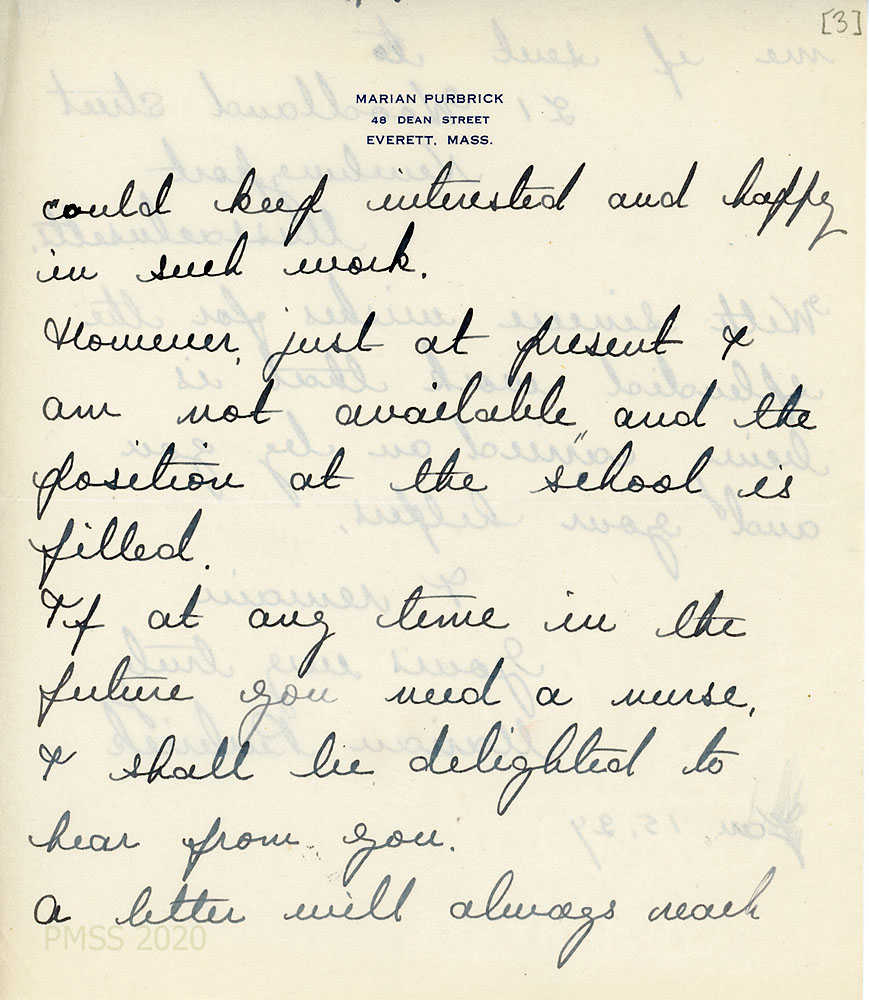 [3]
MARIAN PURBRICK
48 DEAN STREET
EVERETT, MASS.
could keep interested and happy
in such work.
However, just at present I
am not available, and the
position at the school is
filled.
If at any time in the
future you need a nurse,
I shall be delighted to
hear from you.
A letter will always reach
PMSS 2020